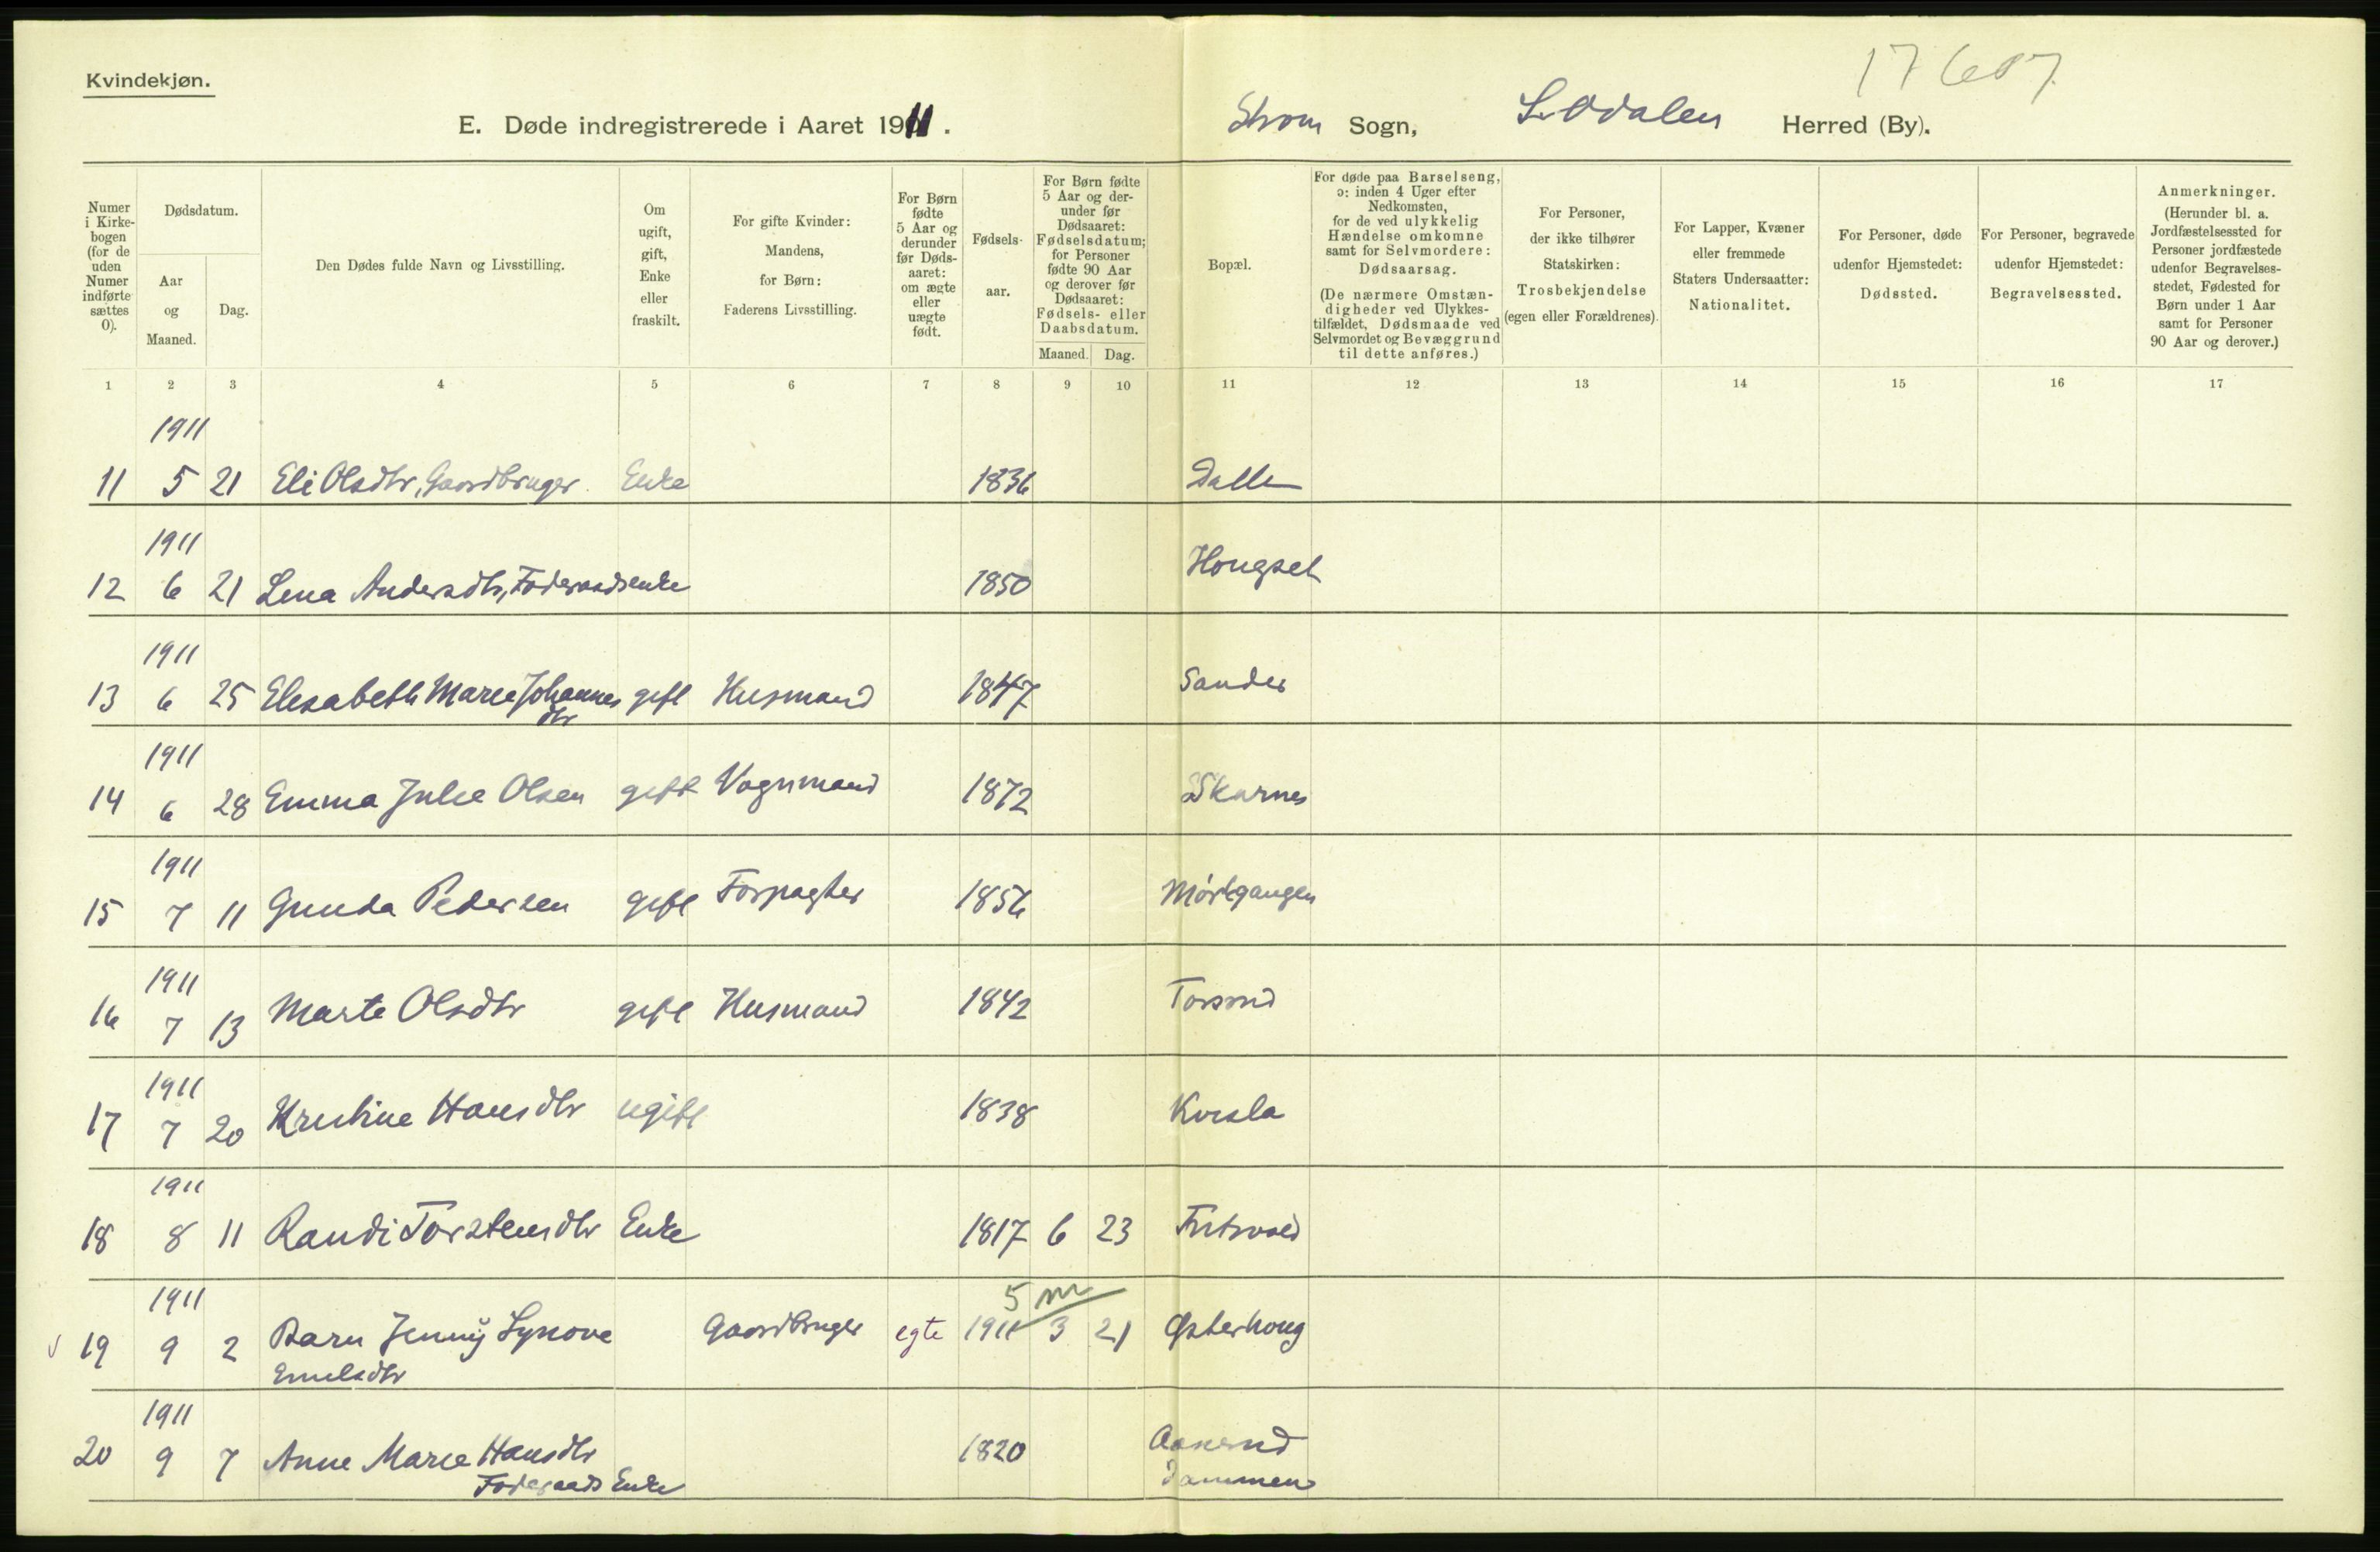 Kvindekjøn.
E. Døde indregistrerede i Aaret 1911.
Strøm Sogn, S. Odalen Herred (By).
Numer i Kirkebogen (for de uden Numer indførte sættes 0).
Dødsdatum.
Aar og Maaned.
Dag.
Den Dødes fulde Navn og Livsstilling.
Om ugift, gift, Enke eller fraskilt.
For gifte Kvinder: Mandens, for Børn: Faderens Livsstilling.
For Børn fødte 5 Aar og derunder før Dødsaaret: om ægte eller uægte født.
Fødselsaar.
For Børn fødte 5 Aar og derunder før Dødsaaret: Fødselsdatum; for Personer fødte 90 Aar og derover før Dødsaaret: Fødsels- eller Daabsdatum.
Maaned. Dag.
Bopæl.
For døde paa Barselseng, ɔ: inden 4 Uger efter Nedkomsten, for de ved ulykkelig Hændelse omkomne samt for Selvmordere: Dødsaarsag.
(De nærmere Omstændigheder ved Ulykkestilfældet, Dødsmaade ved Selvmordet og Bevæggrund til dette anføres.)
For Personer, der ikke tilhører Statskirken: Trosbekjendelse (egen eller Forældrenes).
For Lapper, Kvæner eller fremmede Staters Undersaatter: Nationalitet.
For Personer, døde udenfor Hjemstedet: Dødssted.
For Personer, begravede udenfor Hjemstedet: Begravelsessted.
Anmerkninger.
(Herunder bl. a. Jordfæstelsessted for Personer jordfæstede udenfor Begravelsesstedet, Fødested for Børn under 1 Aar samt for Personer 90 Aar og derover.)
1 2 3 4 5 6 7 8 9 10 11 12 13 14 15 16 17
1911
11 5 21 Eli Olsdtr, Gaardbruger Enke 1836
1911
12 6 21 Lena Andersdtr, Føderaadsenke 1850 Hongset
1911
13 6 25 Elisabeth Marie Johannes gift Husmand 1847 Sander
dtr
1911
14 6 28 Emma Julie Olsen gift Vognmand 1872 Skarnes
1911
15 7 11 Gunda Pedersen gift Forpagter 1856 Mörkgangen
1911
16 7 13 Marte Olsdtr gift Husmand 1842
1911
17 7 20 Kristine Hansdtr ugift 1838 Kvisla
1911
18 8 11 Randi Torstensdtr Enke 1817 6 23
5 m
1911
19 9 2 Barn Jenny Synøve Gaardbruger egte 1911 3 21 Østerhoug
Emilsdtr
1911
20 9 7 Anne Marie Hansdtr 1820
Føderaads Enke Dammen